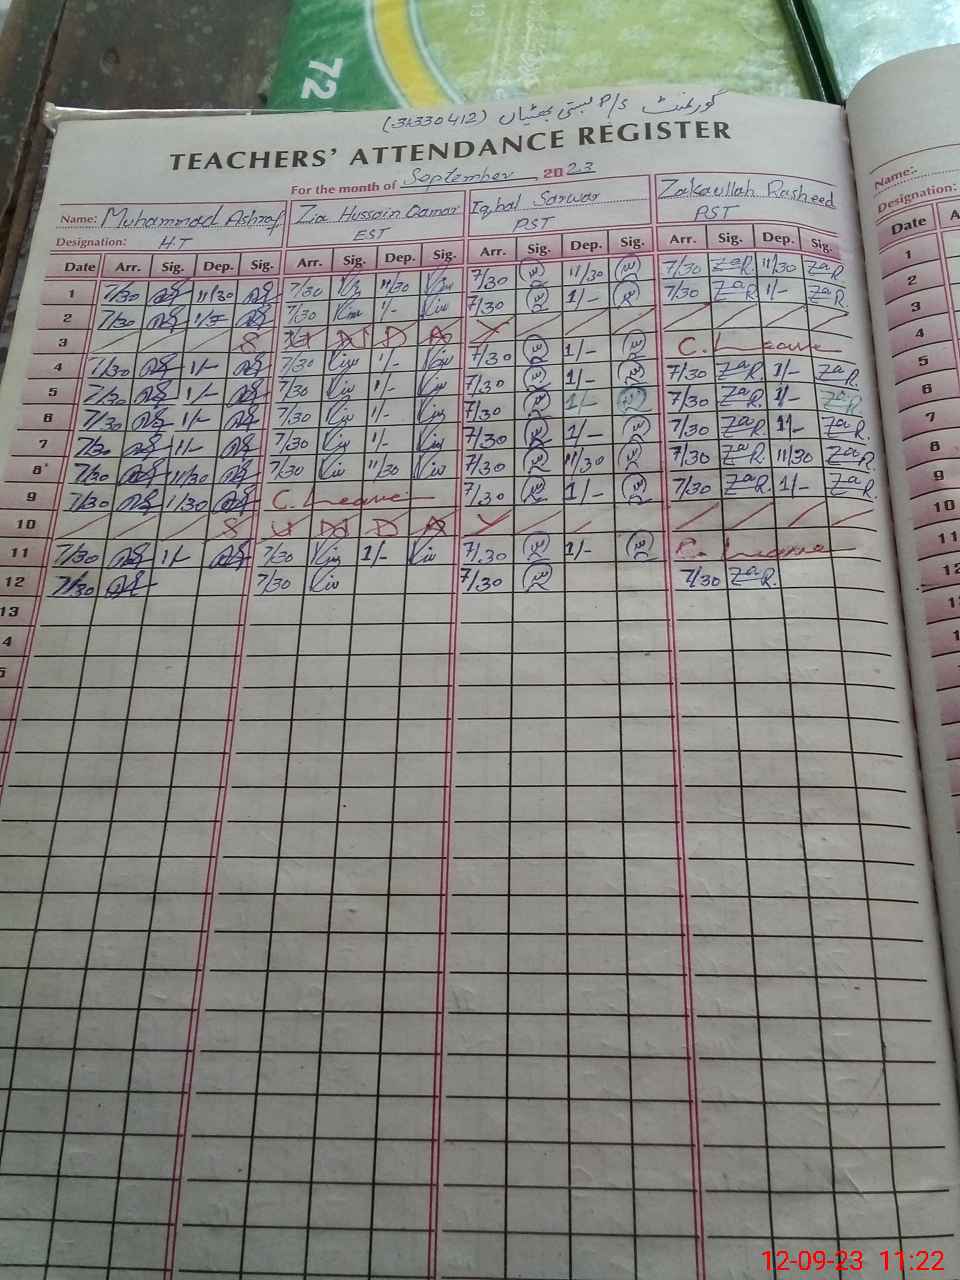 72
گورنمنٹ P/S بستی بھٹیاں (31330412)
TEACHERS' ATTENDANCE REGISTER
For the month of September 2023
Name: Muhammad Ashraf Zia Hussain Qamar Iqbal Sarwar Zakaullah Rasheed
Designation: H.T EST PST PST
Date Arr. Sig. Dep. Sig. Arr. Sig. Dep. Sig. Arr. Sig. Dep. Sig. Arr. Sig. Dep. Sig.
1 7/30 11/30 7/30 11/30 7/30 11/30 7/30 ZaR. 11/30 ZaR
2 7/30 1/- 7/30 1/- 7/30 1/- 7/30 ZaR. 1/- ZaR
3 S U N D A Y
4 7/30 1/- 7/30 1/- 7/30 1/- C. Leave
5 7/30 1/- 7/30 1/- 7/30 1/- 7/30 ZaR. 1/- ZaR.
6 7/30 1/- 7/30 1/- 7/30 1/- 7/30 ZaR. 1/- ZaR.
7 7/30 1/- 7/30 1/- 7/30 1/- 7/30 ZaR. 1/- ZaR.
8 7/30 11/30 7/30 11/30 7/30 11/30 7/30 ZaR. 11/30 ZaR.
9 7/30 11/30 C. Leave 7/30 1/- 7/30 ZaR. 1/- ZaR.
10 S U N D A Y
11 7/30 1/- 7/30 1/- 7/30 1/- C. Leave
12 7/30 7/30 7/30 7/30 ZaR.
13
4
5
Name:-
Designation:
Date A
1
2
3
4
5
6
7
8
9
10
11
12
12-09-23 11:22